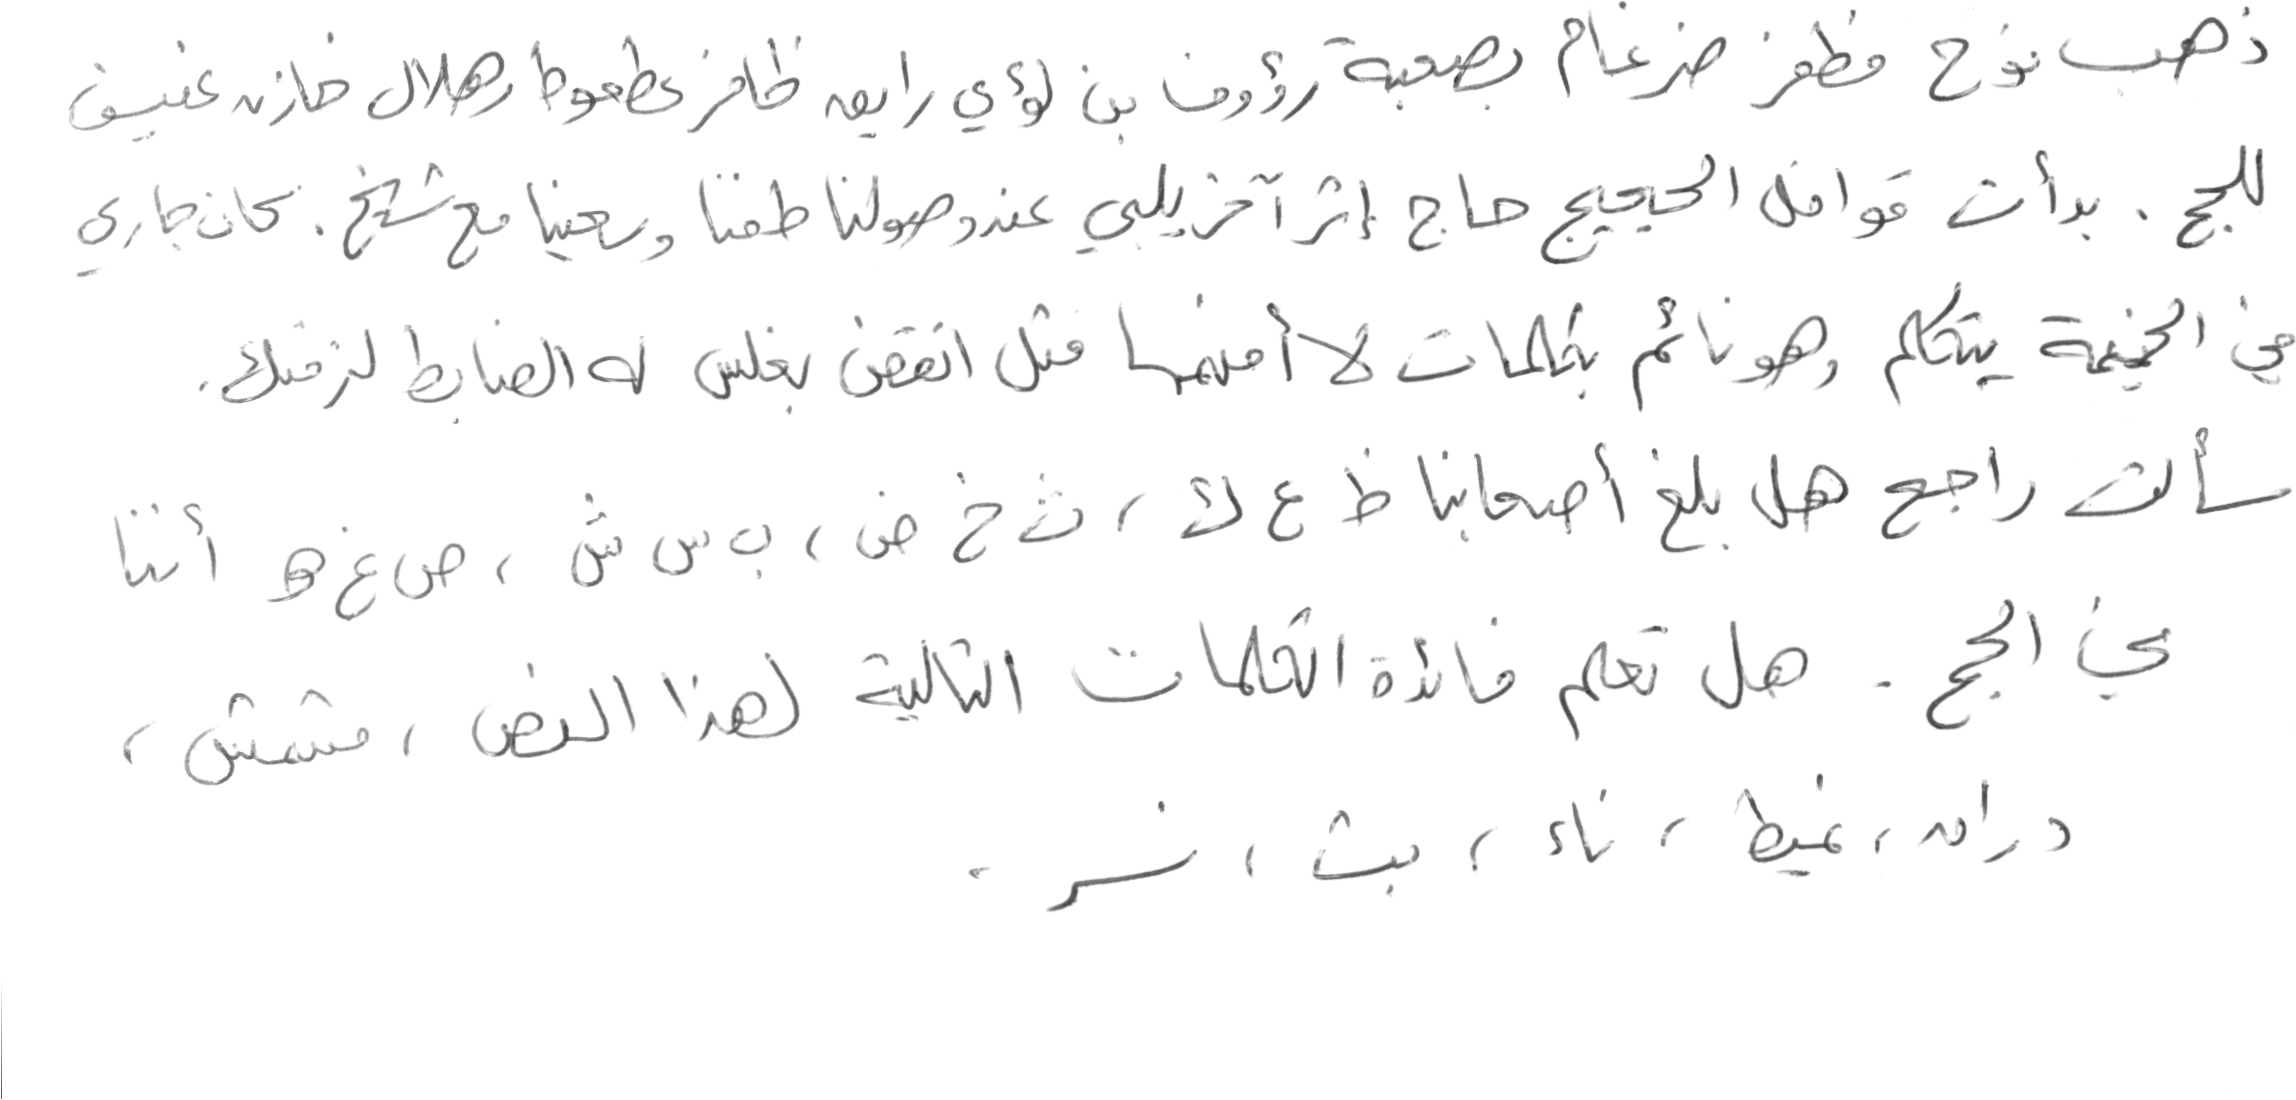 ذهب نوح مظفر ضرغام بصحبة رؤوف بن لؤي رايق ظافر عطعوط وهلال خازن عفيف
للحج . بدأت قوافل الحجيج حاج إثر آخر يلبي عند وصولنا طفنا وسعينا مع شيخ . كان جاري
في الخيمة يتكلم وهو نائم بكلمات لا أفهمها مثل انقض بغلس له الضابط لزفتك .
سألت راجع هل بلغ أصحابنا ظ ع ك ، ث خ ض ، ب س ش ، ص غ هـ أننا
في الحج . هل تعلم فائدة الكلمات التالية لهذا النص ، مشمش ،
دراق ، غيظ ، ناء ، بث ، نسر .